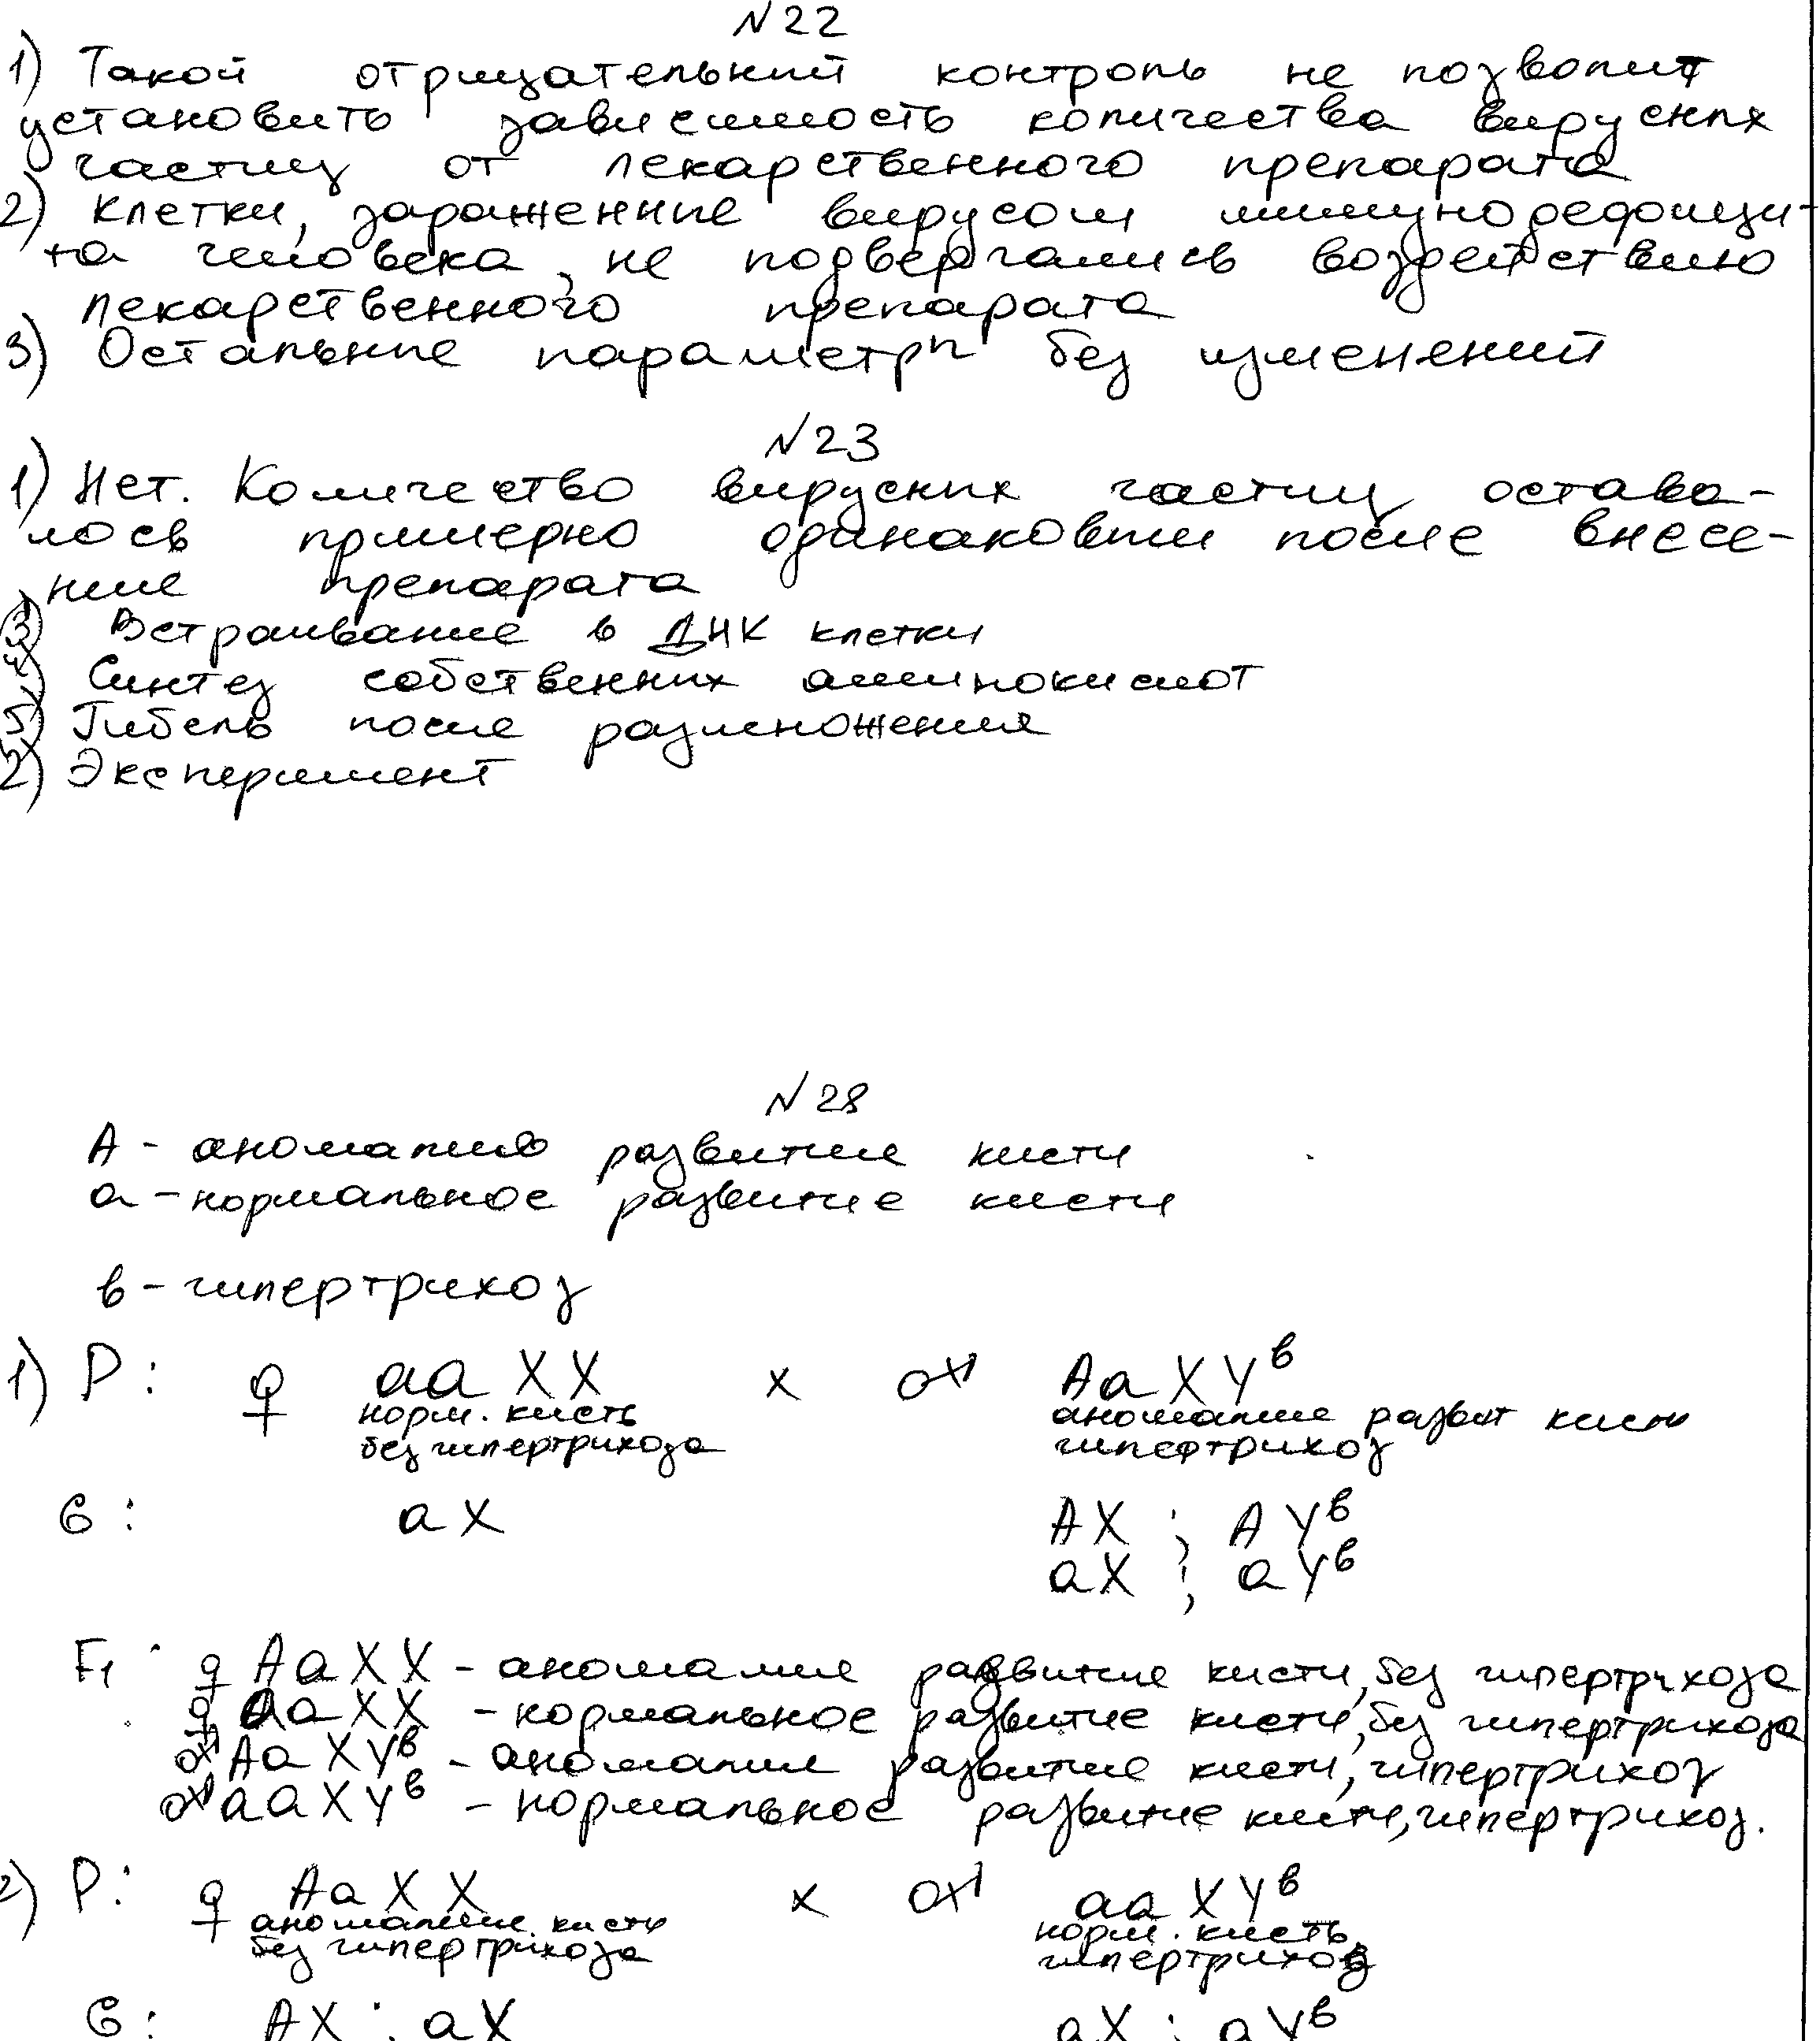 №22
1) Такой отрицательный контроль не позволит
установить зависимость количества вирусных
частиц от лекарственного препарата
2) Клетки, зараженные вирусом иммунодефици-
та человека, не подвергались воздействию
лекарственного препарата
3) Остальные параметры без изменений
№23
1) Нет. Количество вирусных частиц остава-
лось примерно одинаковым после внесе-
ние препарата
3) Встраивание в ДНК клетки
4) Синтез собственных аминокислот
5) Гибель после размножения
2) Эксперимент
№28
А - аномалия развитие кисти
а - нормальное развитие кисти
в - гипертрихоз
1) P: ♀ aa XX x ♂ Aa XY^в
норм. кисть аномалие развит кисти
без гипертрихоза гипертрихоз
G: aX AX ; AY^в
aX ; aY^в
F1 : ♀ AaXX - аномалие развитие кисти, без гипертрихоза
♀ aaXX - нормальное развитие кисти, без гипертрихоза
♂ AaXY^в - аномалие развитие кисти, гипертрихоз
♂ aaXY^в - нормальное развитие кисти, гипертрихоз.
2) P: ♀ AaXX x ♂ aaXY^в
аномалие кисти норм. кисть,
без гипертрихоза гипертрихоз
G: AX ; aX aX ; aY^в